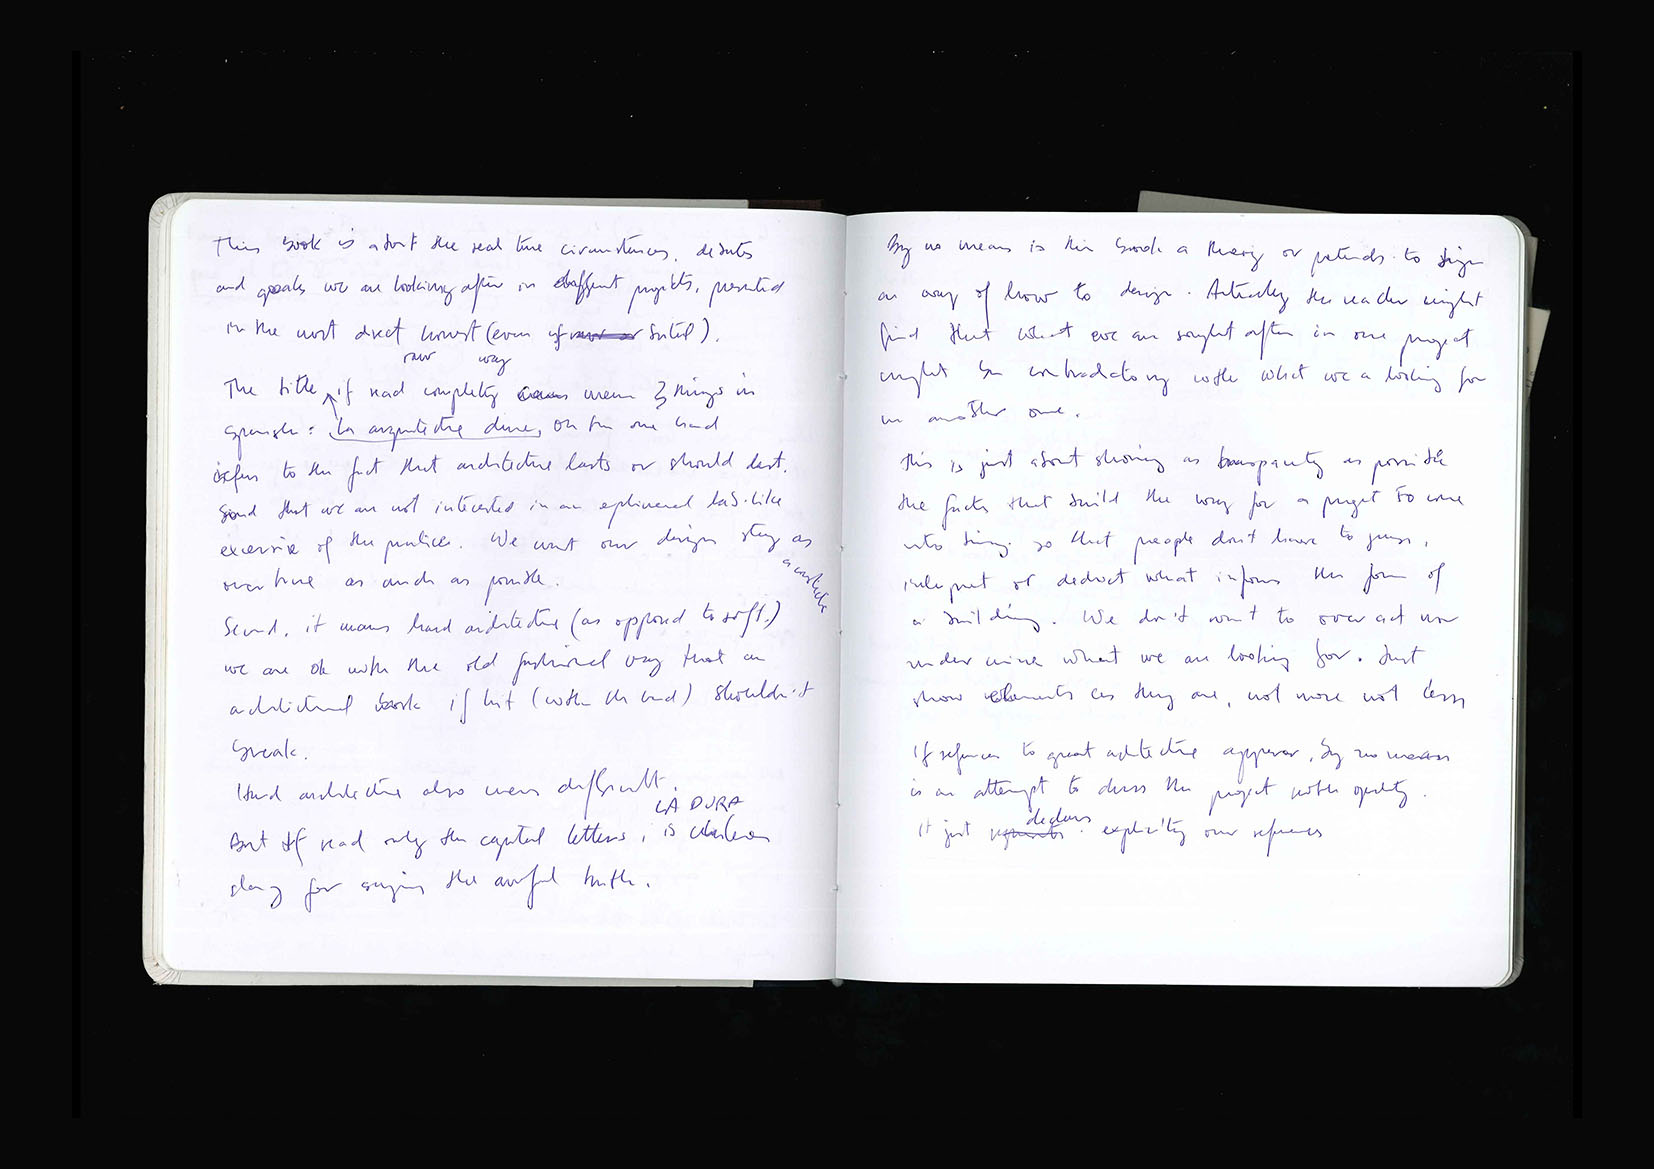 This book is about the real time circumstances, debates
and goals we are looking after in different projects, presented
in the most direct honest (even if brutal).
raw way
The title if read complety mean 3 things in
Spanish: la arquitectura dura, on the one hand
refers to the fact that architecture lasts or should last.
and that we are not interested in an ephimeral lab-like
excercise of the practice. We want our designs stay as
over time as much as possible.
Second, it means hard architecture (as opposed to soft.)
we are ok with the old fashioned way that an
architectural work if hit (with the hand) shouldn't
break.
Hard architecture also means difficult.
LA DURA
But if read only the capital letters, is chilean
slang for saying the awful truth.
By no means is this book a theory or pretends to
way of how to design. Actually the reader might
find that what we are sought after in one project
might be contradictory with what we a looking for
in another one.
This is just about showing as transparently as possible
the facts that build the way for a project to come
into being so that people don't have to guess,
interpret or deduct what informs the form of
a building. We don't want to over act nor
undermine what we are looking for. Just
show elements as they are, not more not less
If refrences to great architecture appear, by no means
is an attempt to dress the project with
declares
It just explicitly our refrences